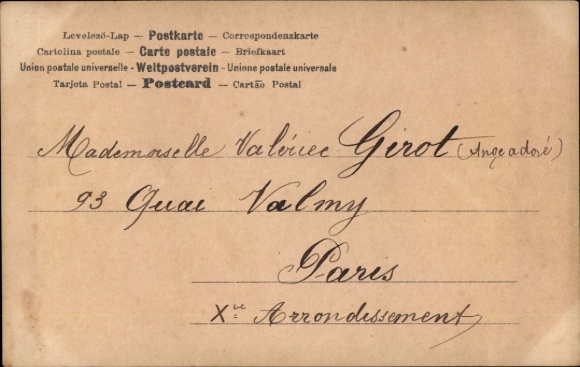 Levelező-Lap — Postkarte — Correspondenzkarte
Cartolina postale — Carte postale — Briefkaart
Union postale universelle - Weltpostverein - Unione postale universale
Tarjeta Postal — Postcard — Cartão Postal
Mademoiselle Valériee Girot (Ange adoré)
93 Quai Valmy
Paris
Xme Arrondissement